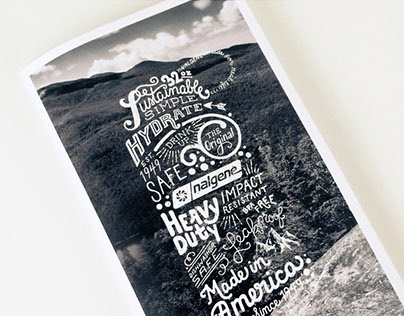 32oz
Sustainable
SIMPLE
HYDRATE
EST.
1949
DRINK
UP
THE
Original
SAFE
nalgene
HEAVY
DUTY
IMPACT
RESISTANT
BPA FREE
Leakproof
DISHWASHER
SAFE
Made in
America
Since 1949